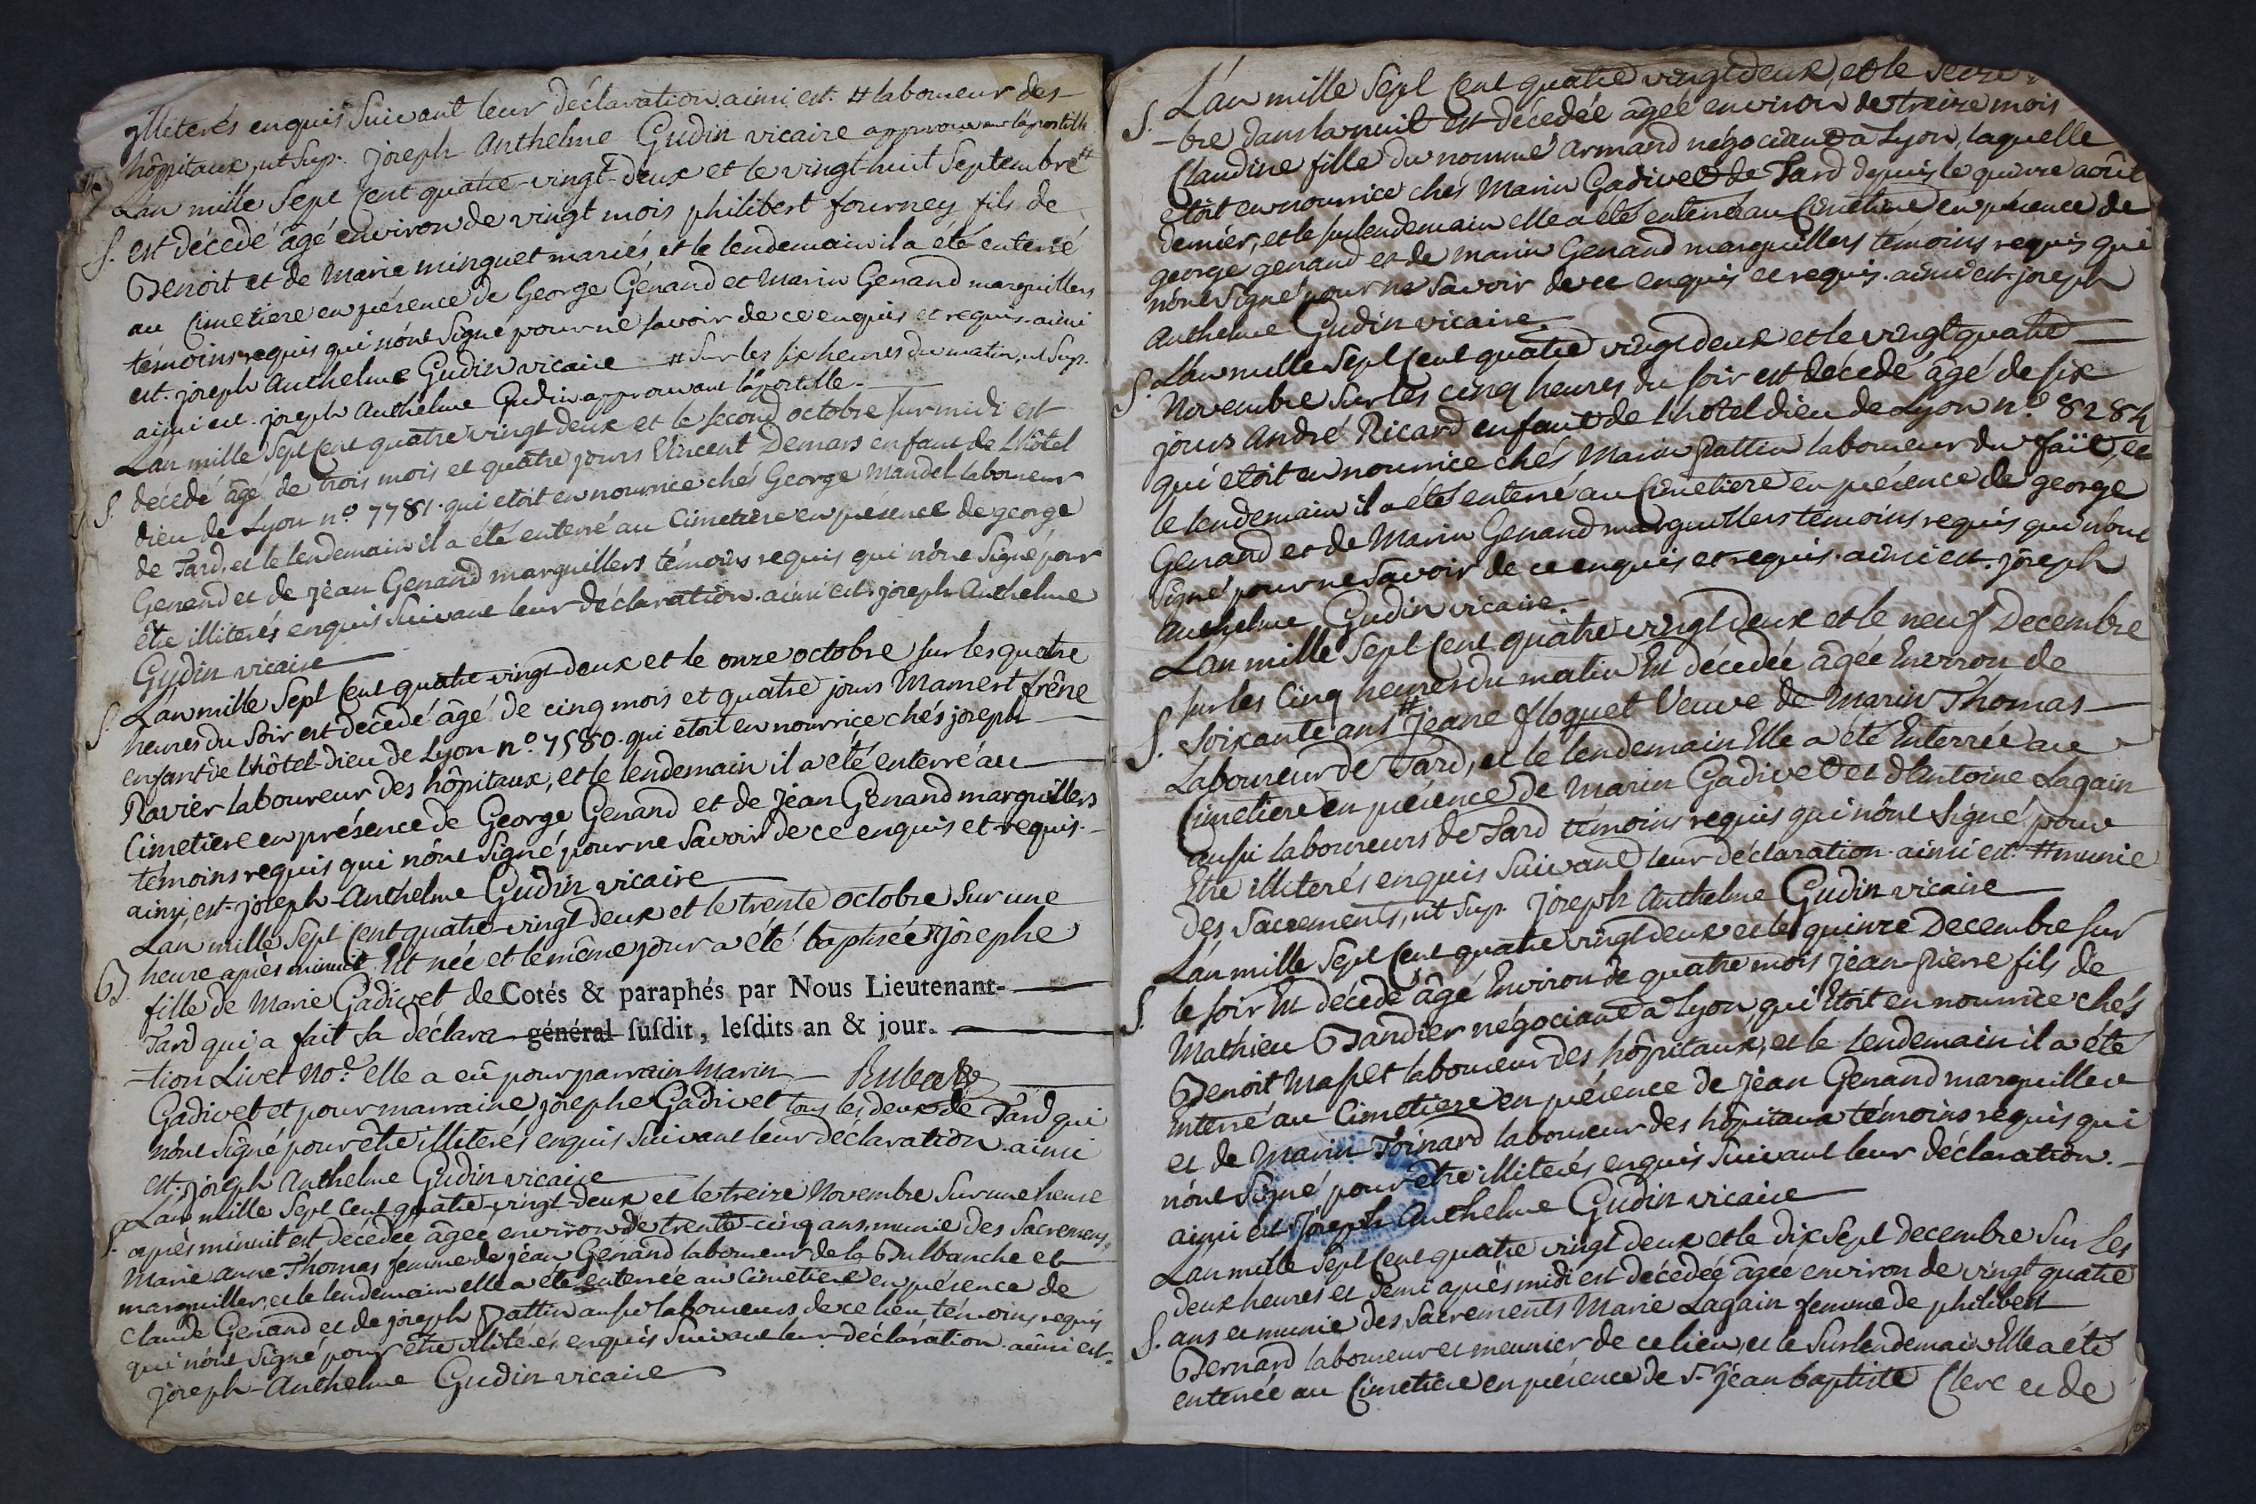 illiterés enquis suivant leur déclaration. ainsi est. # laboureur des
hôpitaux, ut sup. joseph Anthelme Gudin vicaire approuvant l'apostille
L'an mille sept cent quatre-vingt-deux et le vingt-huit septembre #
S. est décedé âgé environ de vingt mois philibert fourney fils de
Benoit et de Marie minguet mariés, et le lendemain il a été enterré
au Cimetiere en présence de George Génand et Marin Genand marguillers
témoins requis qui n'ont signé pour ne savoir de ce enquis et requis. ainsi
est. joseph Anthelme Gudin vicaire # sur les six heures du matin, ut sup.
ainsi est. joseph Anthelme Gudin approuvant l'apostille.
L'an mille sept cent quatre vingt deux et le second octobre sur midi est
S. décedé âgé de trois mois et quatre jours Vincent Demars enfant de L'hôtel
dieu de Lyon n.º 7781. qui etoit en nourrice chés George Mandel laboureur
de Tard, et le lendemain il a été enterré au Cimetiere en présence de george
Genand et de jean Genand marguillers témoins requis qui n'ont signé pour
être illiterés enquis suivant leur déclaration. ainsi est. joseph Anthelme
Gudin vicaire
L'an mille sept cent quatre-vingt-deux et le onze octobre sur les quatre
S. heures du soir est decedé âgé de cinq mois et quatre jours Mamert frêne
enfant de L'hôtel-dieu de Lyon n.º 7580. qui etoit en nourrice chés joseph
Navier laboureur des hôpitaux, et le lendemain il a été enterré au
Cimetiere en présence de George Genand et de jean Genand marguillers
témoins requis qui n'ont signé pour ne savoir de ce enquis et requis.
ainsi est. joseph-Anthelme Gudin vicaire
L'an mille sept cent quatre-vingt deux et le trente octobre sur une
B. heure après minuit Est née et le même jour a été baptisée josephe
fille de Marie Gadivet de Cotés & paraphés par Nous Lieutenant-
Tard qui a fait sa déclara- général susdit, lesdits an & jour.
-tion Livet No.re elle a eû pour parrain Marin
Gadivet et pour marraine josephe Gadivet tous les deux de Tard qui
n'ont signé pour être illiterés enquis suivant leur déclaration. ainsi
est. joseph Anthelme Gudin vicaire
L'an mille sept cent quatre-vingt-deux et le treize Novembre sur une heure
S. après minuit est décedée âgée environ de trente-cinq ans munie des Sacremens
Marie anne Thomas femme de jean Genand laboureur de la Bulbanche et
marguiller, et le lendemain elle a été enterrée au Cimetiere en présence de
Claude Genand et de joseph Pattin aussi laboureurs de ce lieu témoins requis
qui n'ont signé pour être illiterés enquis suivant leur déclaration. ainsi est.
joseph-Anthelme Gudin vicaire
L'an mille sept cent quatre vingt deux, et le seize
S. -bre dans la nuit est décedée âgée environ de treize mois
Claudine fille du nommé Armand négociant à Lyon, laquelle
étoit en nourrice chés Marin Gadivet de Tard depuis le quinze août
dernier, et le surlendemain elle a été enterrée au Cimetiere en présence de
george genand et de marin Genand marguillers témoins requis qui
n'ont signé pour ne savoir de ce enquis et requis. ainsi est. joseph
Anthelme Gudin vicaire.
L'an mille sept cent quatre vingt deux et le vingt quatre
S. Novembre sur les cinq heures du soir est décedé âgé de six
jours André Ricard enfant de l'hôtel dieu de Lyon n.º 8284
qui étoit en nourrice chés Marin Pattin laboureur du faït, et
le lendemain il a été enterré au Cimetiere en présence de george
Genand et de Marin Genand marguillers témoins requis qui n'ont
signé pour ne savoir de ce enquis et requis. ainsi est. joseph
Anthelme Gudin vicaire.
L'an mille sept cent quatre vingt deux et le neuf Decembre
sur les Cinq heures du matin Est décedée âgée Environ de
S. soixante ans # jeane floquet Veuve de Marin Thomas
Laboureur de Tard, et le lendemain Elle a été Enterrée au
Cimetiere en présence de Marin Gadivet et d'Antoine Lagain
aussi laboureurs de Tard témoins requis qui n'ont signé pour
Etre illiterés enquis suivant leur déclaration. ainsi est. # munie
des Sacrements, ut sup. joseph Anthelme Gudin vicaire
L'an mille sept cent quatre vingt deux et le quinze Decembre sur
S. le soir Est décedé âgé Environ de quatre mois jean-pierre fils de
Mathieu Bandier négociant à Lyon, qui Etoit en nourrice chés
Benoit Masset laboureur des hôpitaux, et le lendemain il a été
enterré au Cimetiere en présence de jean Genand marguiller
et de Marin Toinard laboureur des hôpitaux témoins requis qui
n'ont signé pour être illiterés enquis suivant leur déclaration.
ainsi est. joseph Anthelme Gudin vicaire
L'an mille sept cent quatre vingt deux et le dix sept Decembre sur les
deux heures et demi après midi est décedée âgée environ de vingt quatre
S. ans et munie des sacrements Marie Lagain femme de philibert
Bernard laboureur et meunier de ce lieu, et le surlendemain Elle a été
enterrée au Cimetiere en présence de S.r jean baptiste Clerc et de